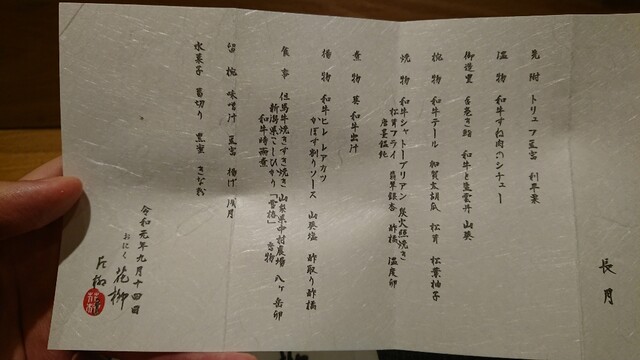 長月
先附 トリュフ豆富 利平栗
温物 和牛すね肉のシチュー
御造里 手巻き鮨 和牛と塩雲丹 山葵
椀物 和牛テール 加賀太胡瓜 松茸 松葉柚子
焼物 和牛シャトーブリアン炭火焼き
松茸フライ 翡翠銀杏 酢橘 温度卵
唐墨
煮物 冬 和牛出汁
揚物 和牛ヒレ レアカツ
かぼす割りソース 山葵塩 酢取り
食事 但馬牛焼きすき焼き 山梨県中村農場 八ヶ岳卵
新潟県こしひかり「雪椿」 香物
和牛時雨煮
留椀 味噌汁 豆富 揚げ 浅月
水菓子 葛切り 黒蜜 きな粉
令和元年九月十四日
おにく 花柳
片柳